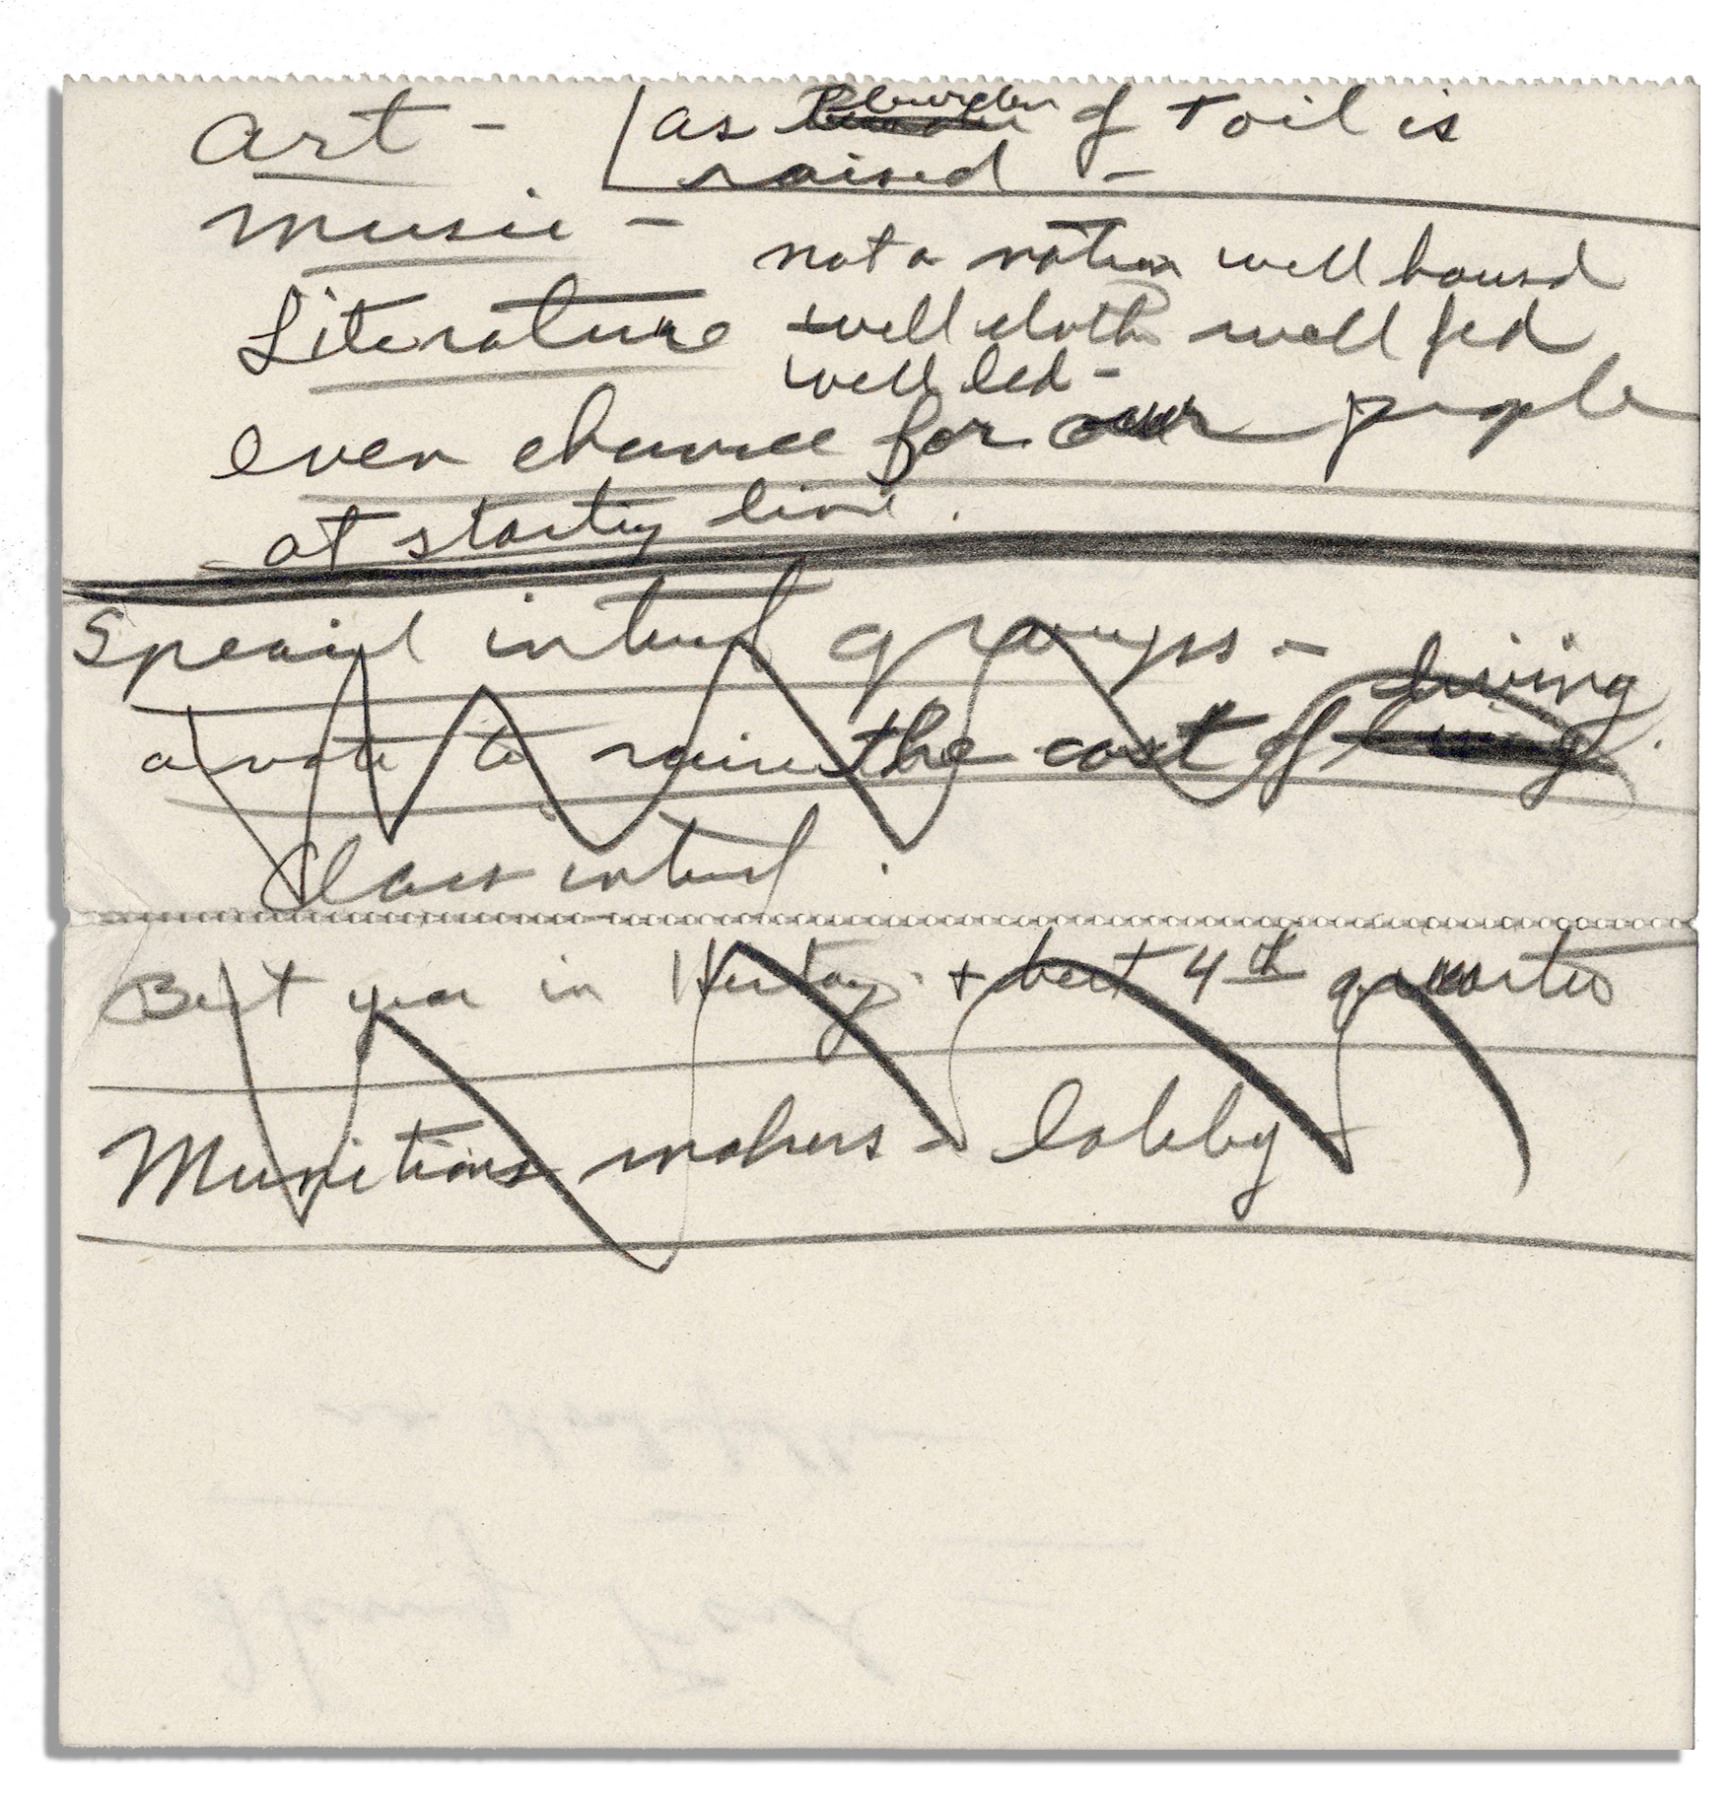 Art - as burden of Toil is
raised -
Music -
not a nation well housd
Literature well cloth well fed
well led -
even chance for our people
at starting line.
Special interest groups -
a vote to raise the cost of living.
Class interest.
Best year in History + best 4th quarter
Munitions makers - lobby -